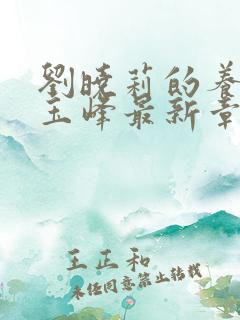 劉曉莉的養
玉峰最新章
王正和
未經同意禁止轉載